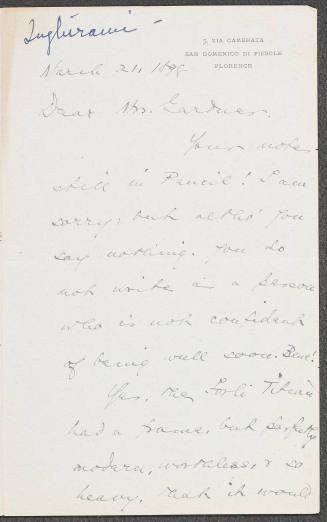 Inghirami -
5, VIA CAMERATA
SAN DOMENICO DI FIESOLE
FLORENCE
March 21, 1898
Dear Mrs. Gardner.
Your note
still in Pencil! I am
sorry; but altho' you
say nothing. You do
not write as a person
who is not confident
of being well soon. Bene!
Yes, the Titian
had a frame, but perfectly
modern, worthless, & so
heavy, that it would